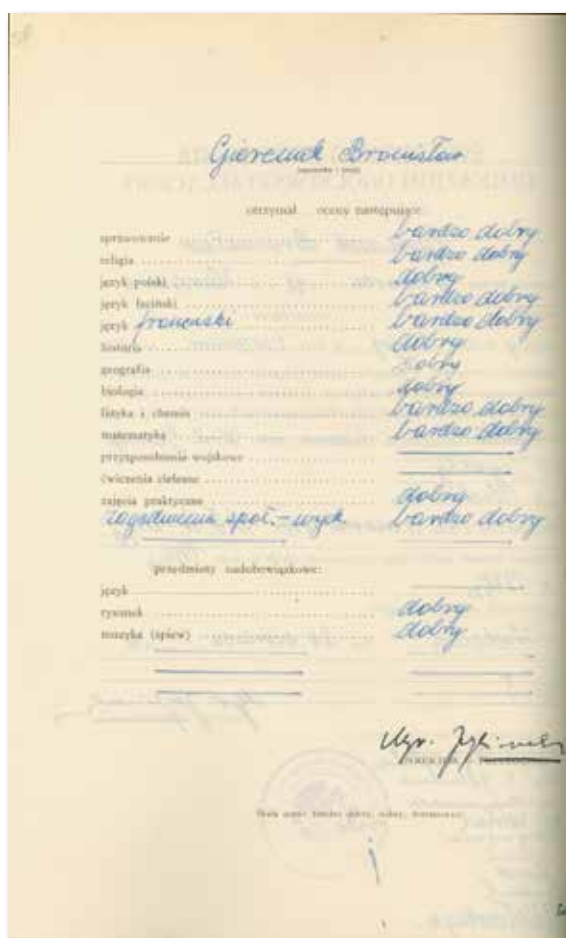 Bronisław
otrzymał oceny następujące:
sprawowanie bardzo dobry
religia bardzo dobry
język polski dobry
język łaciński bardzo dobry
język francuski bardzo dobry
historia dobry
geografia dobry
biologia dobry
fizyka i chemia bardzo dobry
matematyka bardzo dobry
przysposobienie wojskowe
ćwiczenia cielesne
zajęcia praktyczne dobry
zagadnienia społ.-wych. bardzo dobry
przedmioty nadobowiązkowe:
język
rysunek dobry
muzyka (śpiew) dobry
Mgr.
Skala ocen: bardzo dobry, dobry, dostateczny